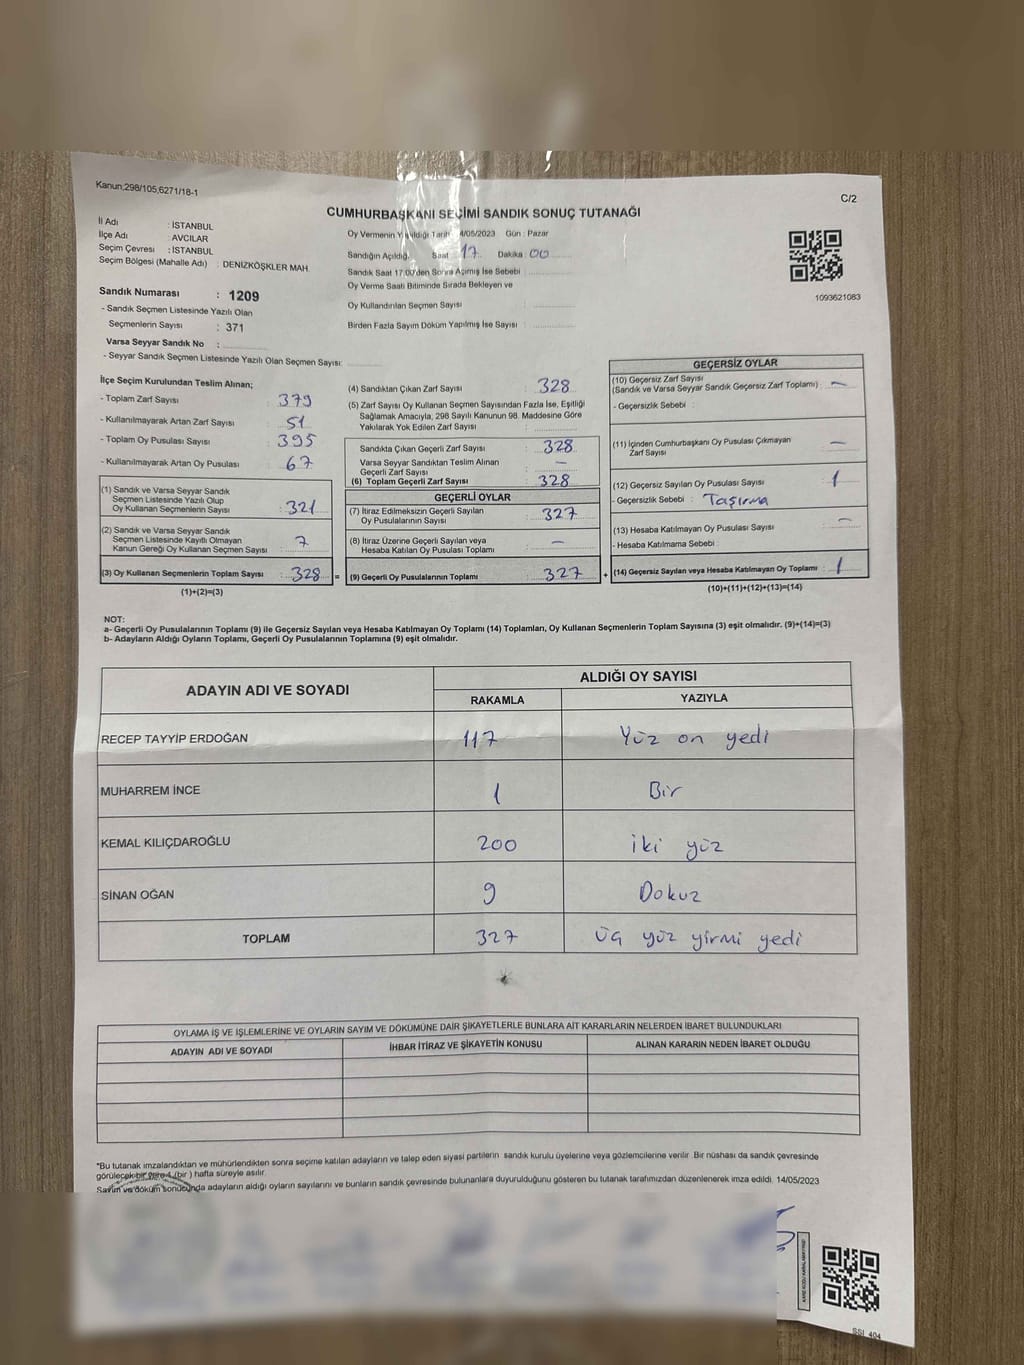 Kanun;298/105,6271/18-1
C/2
CUMHURBAŞKANI SEÇİMİ SANDIK SONUÇ TUTANAĞI
İl Adı : İSTANBUL
İlçe Adı : AVCILAR
Seçim Çevresi : İSTANBUL
Seçim Bölgesi (Mahalle Adı) : DENİZKÖŞKLER MAH.
Sandık Numarası : 1209
- Sandık Seçmen Listesinde Yazılı Olan
Seçmenlerin Sayısı : 371
Varsa Seyyar Sandık No :
- Seyyar Sandık Seçmen Listesinde Yazılı Olan Seçmen Sayısı:
Oy Vermenin 4/05/2023 Gün : Pazar
Sandığın Açıldığı Saat 17 Dakika 00
Sandık Saat 17.00'den Sonra Açılmış İse Sebebi
Oy Verme Saati Bitiminde Sırada Bekleyen ve
Oy Kullandırılan Seçmen Sayısı :
Birden Fazla Sayım Döküm Yapılmış İse Sayısı :
1093621083
İlçe Seçim Kurulundan Teslim Alınan;
- Toplam Zarf Sayısı : 379
- Kullanılmayarak Artan Zarf Sayısı : 51
- Toplam Oy Pusulası Sayısı : 395
- Kullanılmayarak Artan Oy Pusulası : 67
(1) Sandık ve Varsa Seyyar Sandık
Seçmen Listesinde Yazılı Olup
Oy Kullanan Seçmenlerin Sayısı : 321
(2) Sandık ve Varsa Seyyar Sandık
Seçmen Listesinde Kayıtlı Olmayan
Kanun Gereği Oy Kullanan Seçmen Sayısı : 7
(3) Oy Kullanan Seçmenlerin Toplam Sayısı : 328 =
(1)+(2)=(3)
(4) Sandıktan Çıkan Zarf Sayısı : 328
(5) Zarf Sayısı Oy Kullanan Seçmen Sayısından Fazla İse, Eşitliği
Sağlamak Amacıyla, 298 Sayılı Kanunun 98. Maddesine Göre
Yakılarak Yok Edilen Zarf Sayısı :
Sandıkta Çıkan Geçerli Zarf Sayısı : 328
Varsa Seyyar Sandıktan Teslim Alınan
Geçerli Zarf Sayısı : —
(6) Toplam Geçerli Zarf Sayısı : 328
GEÇERLİ OYLAR
(7) İtiraz Edilmeksizin Geçerli Sayılan
Oy Pusulalarının Sayısı : 327
(8) İtiraz Üzerine Geçerli Sayılan veya
Hesaba Katılan Oy Pusulası Toplamı : —
(9) Geçerli Oy Pusulalarının Toplamı : 327 +
GEÇERSİZ OYLAR
(10) Geçersiz Zarf Sayısı
(Sandık ve Varsa Seyyar Sandık Geçersiz Zarf Toplamı) : —
- Geçersizlik Sebebi :
(11) İçinden Cumhurbaşkanı Oy Pusulası Çıkmayan
Zarf Sayısı : —
(12) Geçersiz Sayılan Oy Pusulası Sayısı : 1
- Geçersizlik Sebebi : Taşırma
(13) Hesaba Katılmayan Oy Pusulası Sayısı : —
- Hesaba Katılmama Sebebi :
(14) Geçersiz Sayılan veya Hesaba Katılmayan Oy Toplamı : 1
(10)+(11)+(12)+(13)=(14)
NOT:
a- Geçerli Oy Pusulalarının Toplamı (9) ile Geçersiz Sayılan veya Hesaba Katılmayan Oy Toplamı (14) Toplamları, Oy Kullanan Seçmenlerin Toplam Sayısına (3) eşit olmalıdır. (9)+(14)=(3)
b- Adayların Aldığı Oyların Toplamı, Geçerli Oy Pusulalarının Toplamına (9) eşit olmalıdır.
ADAYIN ADI VE SOYADI
ALDIĞI OY SAYISI
RAKAMLA YAZIYLA
RECEP TAYYİP ERDOĞAN 117 Yüz on yedi
MUHARREM İNCE 1 Bir
KEMAL KILIÇDAROĞLU 200 iki yüz
SİNAN OĞAN 9 Dokuz
TOPLAM 327 Üç yüz yirmi yedi
OYLAMA İŞ VE İŞLEMLERİNE VE OYLARIN SAYIM VE DÖKÜMÜNE DAİR ŞİKAYETLERLE BUNLARA AİT KARARLARIN NELERDEN İBARET BULUNDUKLARI
ADAYIN ADI VE SOYADI İHBAR İTİRAZ VE ŞİKAYETİN KONUSU ALINAN KARARIN NEDEN İBARET OLDUĞU
*Bu tutanak imzalandıktan ve mühürlendikten sonra seçime katılan adayların ve talep eden siyasi partilerin sandık kurulu üyelerine veya gözlemcilerine verilir. Bir nüshası da sandık çevresinde
görülecek bir yere 1 (bir ) hafta süreyle asılır.
Sayım ve döküm sonucunda adayların aldığı oyların sayılarını ve bunların sandık çevresinde bulunanlara duyurulduğunu gösteren bu tutanak tarafımızdan düzenlenerek imza edildi. 14/05/2023
SSI_404